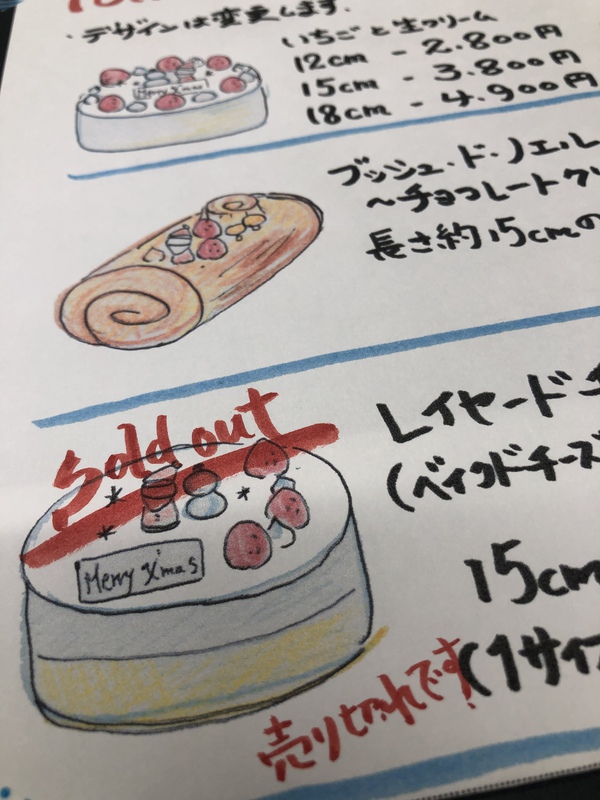 ・デザインは変更します.
いちごと生クリーム
12cm - 2.800円
15cm - 3.800円
18cm - 4.900円
Merry Xmas
ブッシュ・ド・ノエル
〜チョコレートク
長さ約15cmの
Sold out
レイヤードチ
(ベイクドチーズ
Merry Xmas
15cm
(1サイズ
売り切れです!